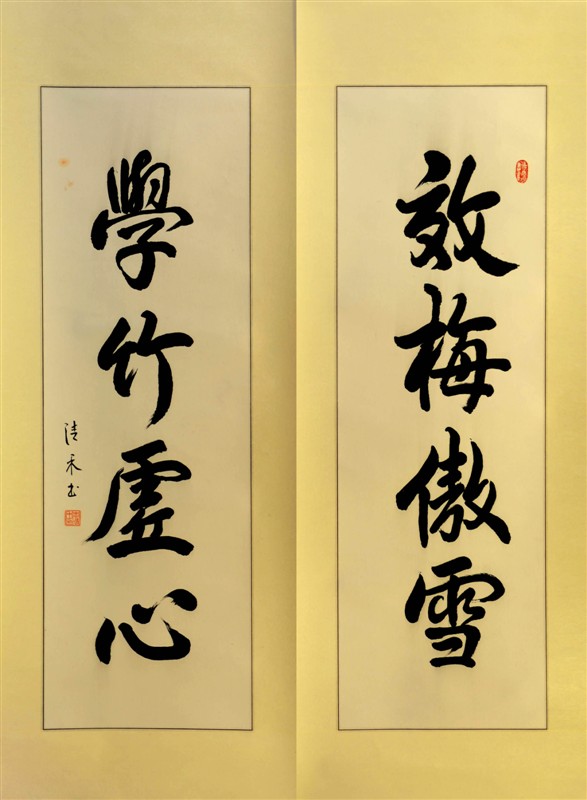 效梅傲雪
學竹虛心
清禾书